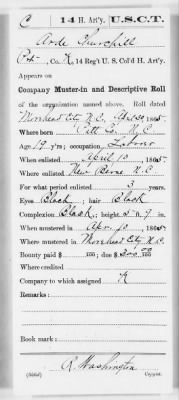 C 14 H. Art'y. U.S.C.T.
Arde Churchill
Pvt., Co. K, 14 Reg't U.S. Col'd H. Art'y.
Appears on
Company Muster-in and Descriptive Roll
of the organization named above. Roll dated
Morehead City N.C., Apl 30, 1865.
Where born Pitt Co. N.C.
Age 19 y'rs; occupation Laborer
When enlisted April 10, 1865.
Where enlisted New Berne N.C.
For what period enlisted 3 years.
Eyes Black; hair Black
Complexion Black; height 5 ft. 7 in.
When mustered in Apr. 10, 1865.
Where mustered in Morehead City N.C.
Bounty paid $ 100; due $ 100
Where credited
Company to which assigned K
Remarks:
Book mark:
R. Washington
Copyist.